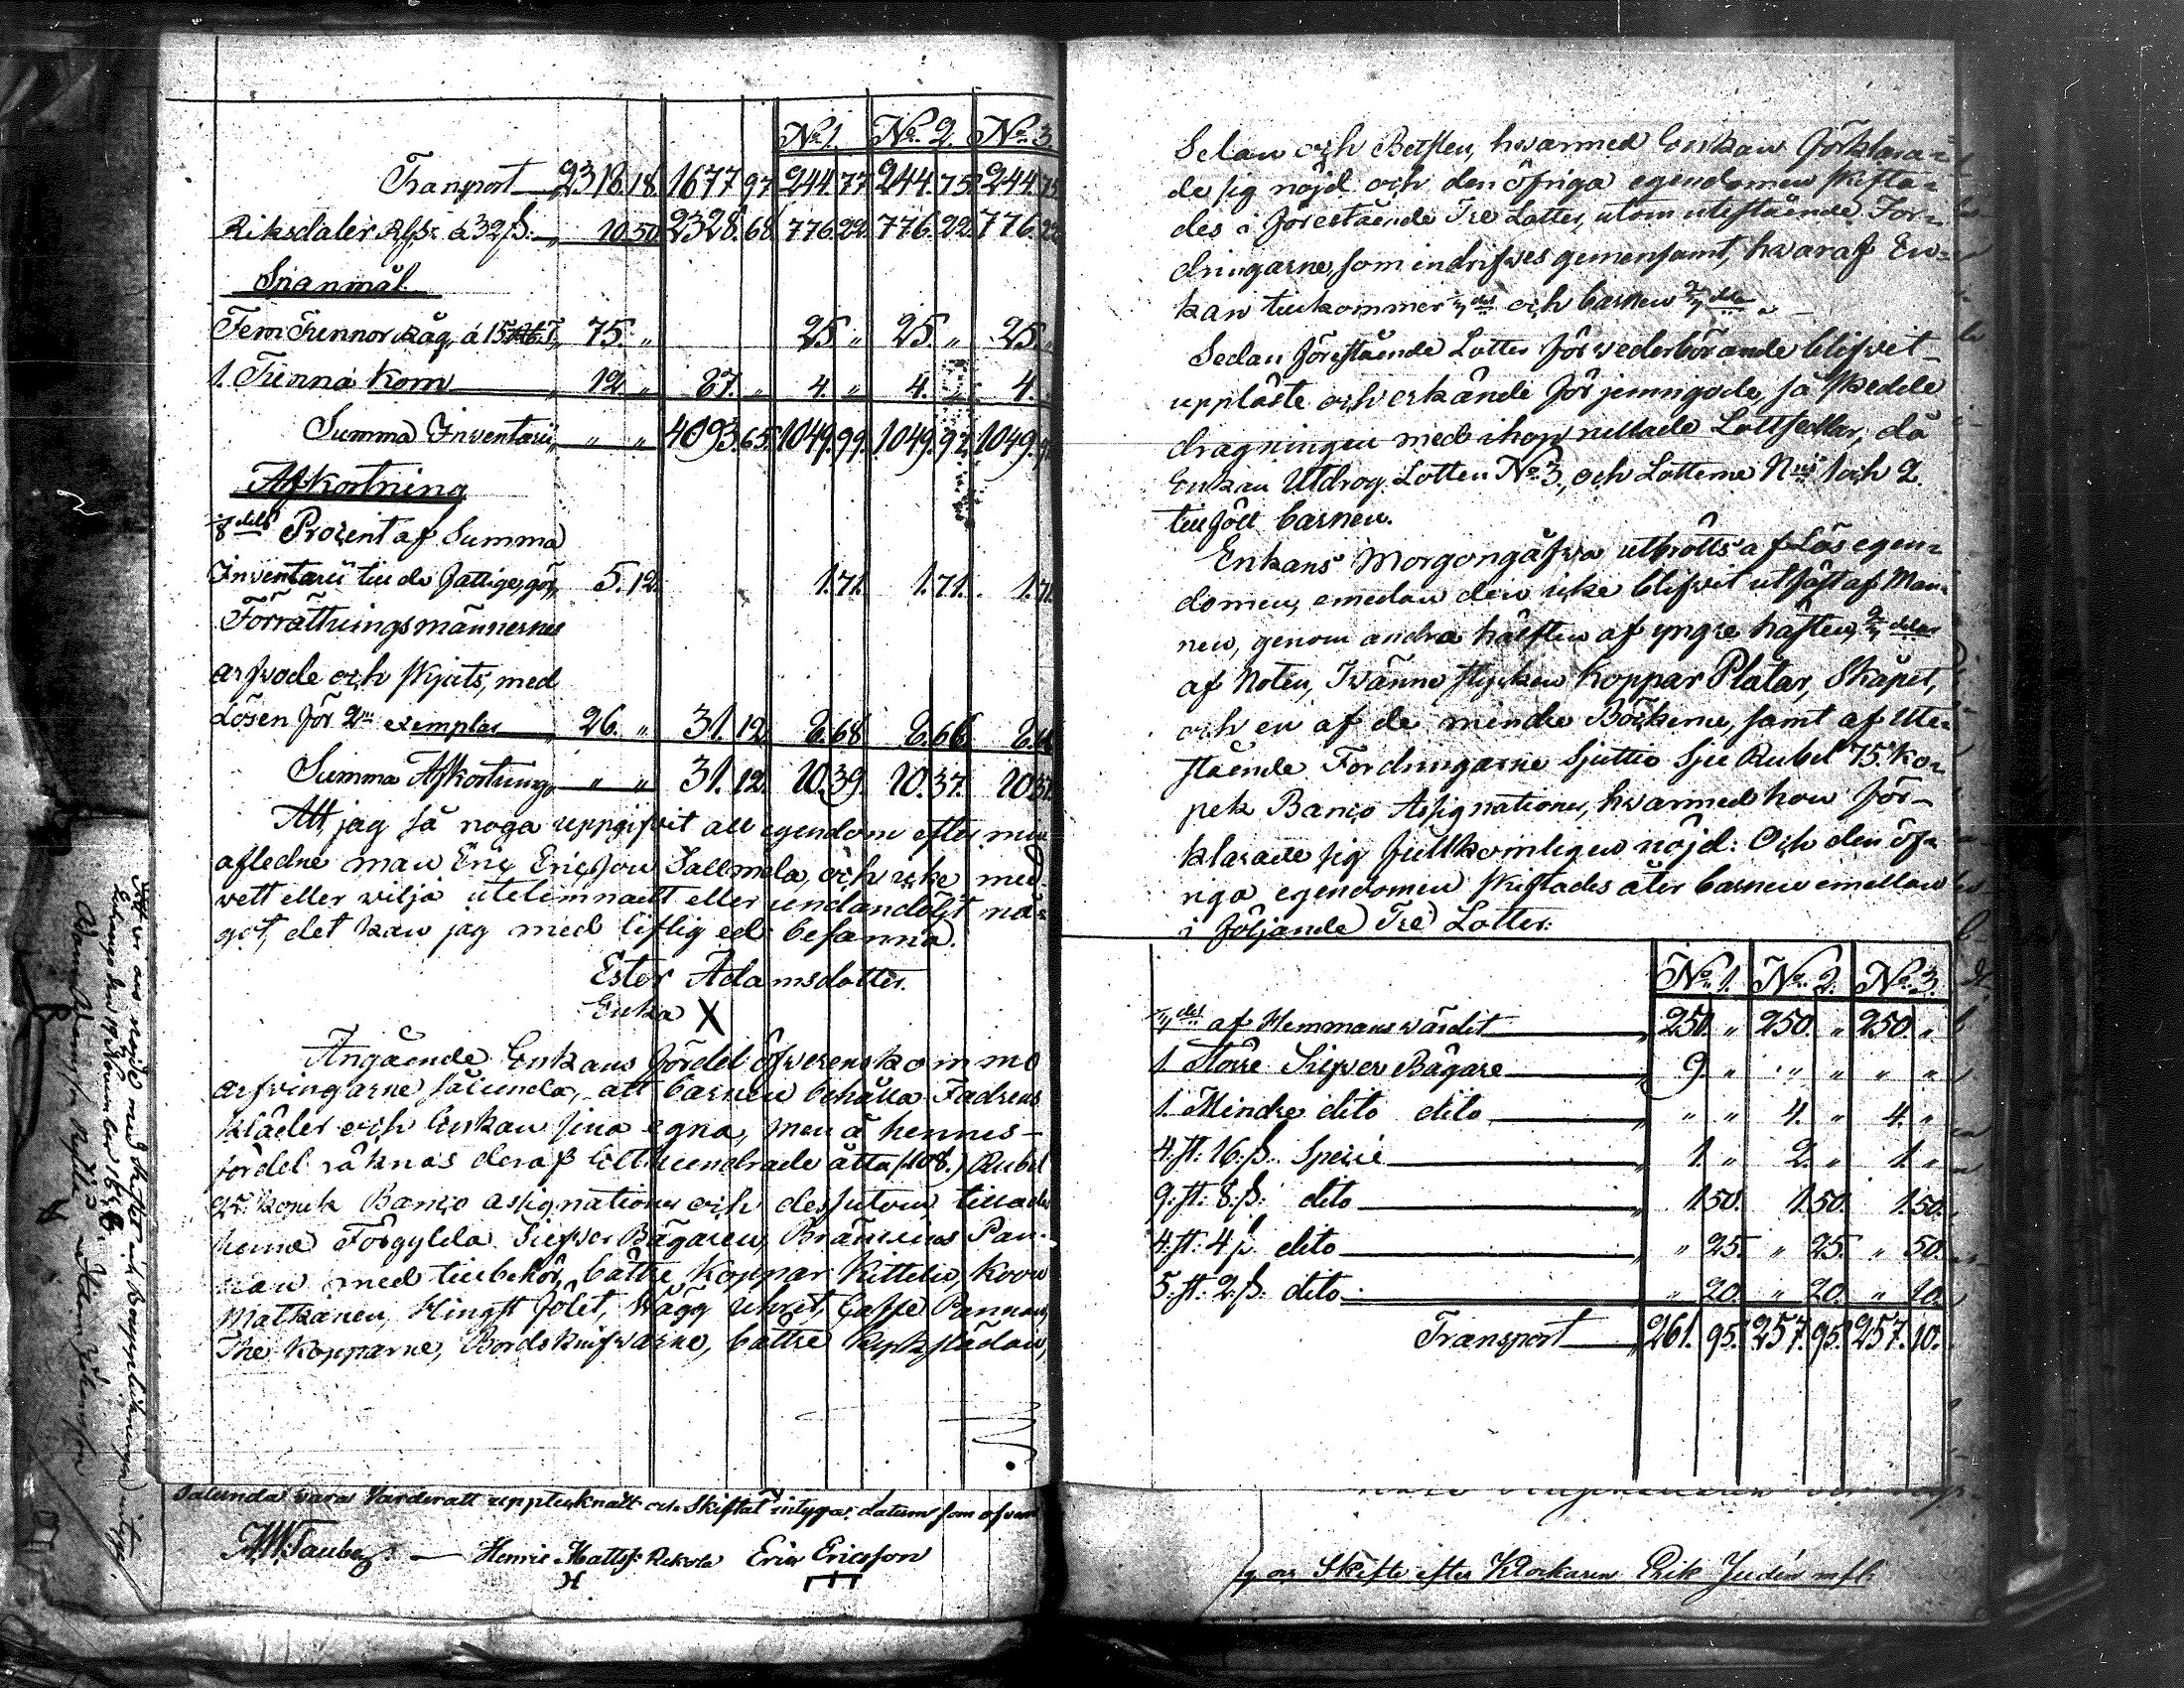 No 1. No 2. No 3.
Transport 2318.18. 1677.97. 244.77. 244.75. 244.75
Riksdaler Rgs: á 32 ß: 10.50. 2328.68. 776.22. 776.22. 776.22
Spanmål.
Fem Tunnor Råg, á 15 75. " 25. " 25. " 25. "
1. Tunna Korn 12. " 87. " 4. " 4. " 4.
Summa Inventarii " " 4093.65. 1049.99. 1049.97. 1049.97
Afkortning
dels Procent af Summa
Inventarii till de fattige, gör 5.12. 1.71. 1.71. 1.71.
Förrättningsmännernes
arfvode och skjuts, med
Lösen för 2ne exemplar 26. " 31.12. 8.68 8.66 8.66
Summa Afkortning " " 31.12. 10.39. 10.37. 10.37.
Att jag så noga uppgifvit all egendom efter min
afledne man Eric Ericsson Sallmela, och icke med
vett eller vilja utelemnadt eller undandöljt nå-
got, det kan jag med liflig ed besanna.
Ester Adamsdotter.
Enka X
Angående Enkans fördel öfverenskommo
arfvingarne sålunda, att barnen behålla Fadrens
kläder och Enkan sina egna, men å hennes
fördel räknas deraf Etthundrade åtta (108.) Rubel
95. kopek Banco assignationer och dessutom tillades
henne Förgylda Silfver Bägaren, Brännvins Pan-
nan med tillbehör, bättre Koppar Kittelen, Koon
Matkanen, Hingst fölet, Vägg Uhret, Caffe Pannan,
The Kopparne, Bordsknifvarne, bättre
Sålunda vara Värderatt upptecknatt och Skiftat intygar. datum som ofvan
H.W. Tauber Henric Matts: Rekola Eric Ericsson
Selan och Betslen, hvarmed Enkan förklara-
de sig nöjd och den öfriga egendomen skifta-
des i förestående Tre Lotter, utom utestående For-
dringarne, som indrifves gemensamt, hvaraf En-
kan tillkommer 1/3 del och barnen 2/3 delar.
Sedan förestående Lotter för vederbörande blifvit
upplåste och erkände för jemngode, så skedde
dragningen med ihop rullade Lottsedlar, då
Enkan Utdrog Lotten No 3, och Lotterne No 1 och 2.
tillföll barnen.
Enkans Morgongåfva utbröts af Lösegen-
domen, emedan den icke blifvit utfäst af Man-
nen, genom andra hälften af yngre hästen, 2/3 delar
af Noten, Tvänne stycken Koppar Plåtar, Skåpet,
och en af de mindre Böckerne, samt af Ute-
stående Fordringarne Sjuttio Sju Rubel 75 Ko-
pek Banco Assignationer, hvarmed hon för-
klarade sig fullkomligen nöjd: Och den öf-
riga egendomen skiftades åter barnen emellan
i följande Tre Lotter:
No 1. No 2. No 3.
1/3 del af Hemmans värdet 250. " 250. " 250. "
1 större Silfver Bägare 9. " " " " "
1. Mindre dito dito " " 4. " 4. "
4. st: 16. ß. Specie 1. " 2. " 1. "
9. st: 8. ß: dito 1.50. 1.50. 1.50.
4. st: 4 ß dito " 25. " 25. " 50.
5. st: 2. ß: dito " 20. " 20. " 10.
Transport 261.95. 257.95. 257.10.
Skifte efter Klockaren Erik Judén mfl: